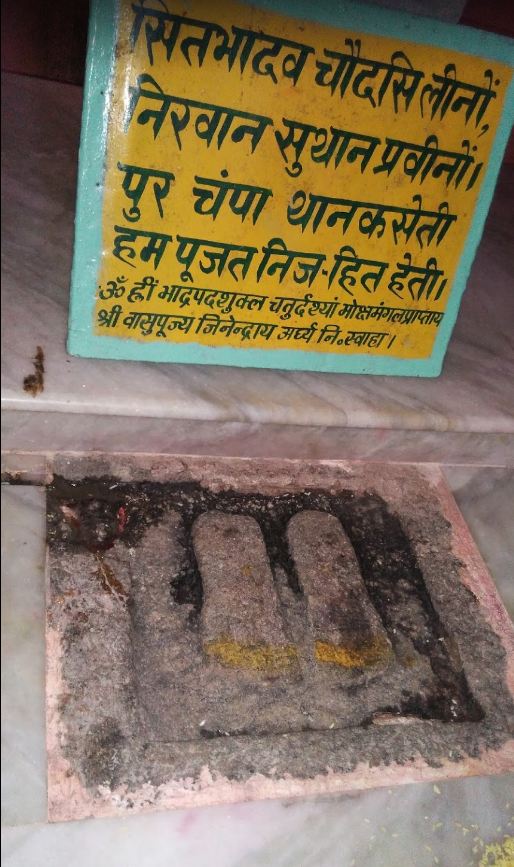 सितभादव चौदसि लीनों,
निरवान सुथान प्रवीनों।
पुर चंपा थानकसेती
हम पूजत निज-हित हेती।
ॐ ह्रीं भाद्रपदशुक्ल चतुर्दश्यां मोक्षमंगलप्राप्ताय
श्री वासुपूज्य जिनेन्द्राय अर्घ्य नि॰स्वाहा।